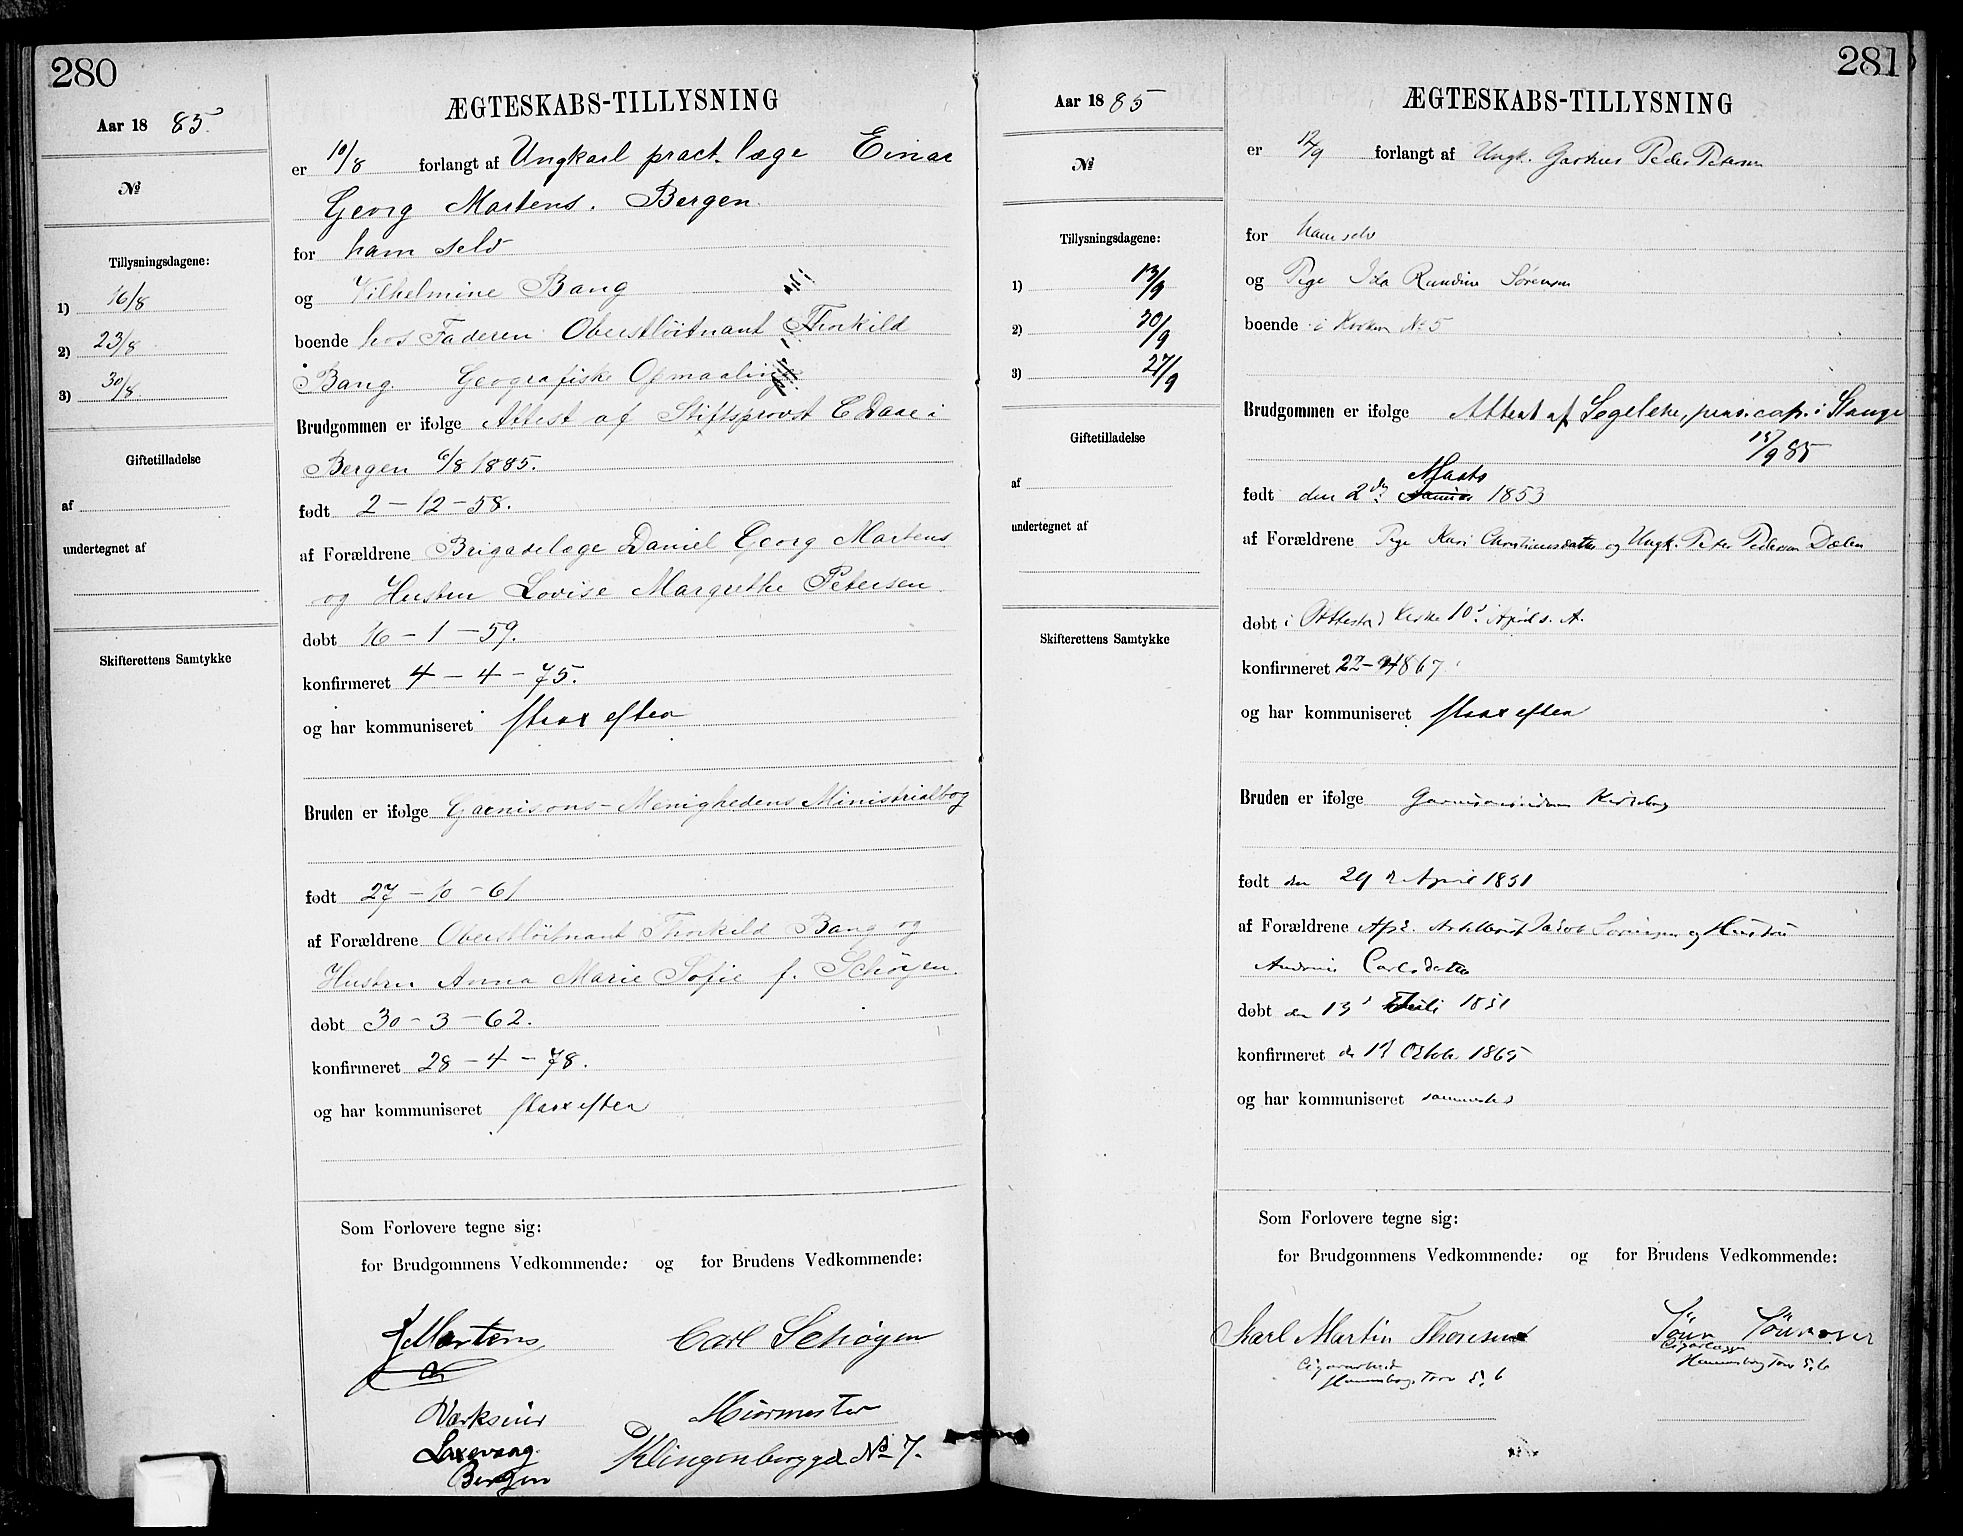 280
Aar 1885.
№
Tillysningsdagene:
1) 16/8
2) 23/8
3) 30/8
Giftetilladelse
af
undertegnet af
Skifterettens Samtykke
ÆGTESKABS-TILLYSNING
er 10/8 forlangt af Ungkarl pract. læge Einar
Georg Martens. Bergen.
for ham selv
og Vilhelmine Bang
boende hos Faderen Oberstløitnant Thorkild
Bang. Geografiske Opmaaling
Brudgommen er ifølge Attest af Stiftsprovst C Daae i
Bergen 6/8 1885.
født 2-12-58.
af Forældrene Brigadelæge Daniel Georg Martens
og Hustru Lovise Margrethe Petersen
døbt 16-1-59.
konfirmeret 4-4-75.
og har kommuniseret strax efter
Bruden er ifølge Garnisons-Menighedens Ministrialbog
født 27-10-61
af Forældrene Oberstløitnant Thorkild Bang og
Hustru Anna Marie Sofie f. Schøyen.
døbt 30-3-62.
konfirmeret 28-4-78.
og har kommuniseret strax efter
Som Forlovere tegne sig:
for Brudgommens Vedkommende: og for Brudens Vedkommende:
Martens, Carl Schøyen
Murmester
Laxevaag Klingenberggd № 7.
Bergen
281
Aar 1885
№
Tillysningsdagene:
1) 13/9
2) 20/9
3) 27/9
Giftetilladelse
af
undertegnet af
Skifterettens Samtykke
ÆGTESKABS-TILLYSNING
er 12/9 forlangt af Ungk. Peder Petersen
for ham selv
og Pige Ida Rundine Sørensen
boende i № 5
Brudgommen er ifølge Attest af Segelcke, pers. cap. i Stange
15/9 85
Marts
født den 2den Januar 1853
af Forældrene Pige Kari Christiansdatter og Ungk. Peder Pedersen Dælen
døbt i Ottestad Kirke 10 April s. A.
konfirmeret 22- 1867
og har kommuniseret strax efter
Bruden er ifølge Garnisonsmenighedens Kirkebog
født den 29 April 1851
af Forældrene Jakob Sørensen og Hustru
Carlsdatter
døbt den 13 Juli 1851
konfirmeret d. Oktober 1865
og har kommuniseret sammesteds
Som Forlovere tegne sig:
for Brudgommens Vedkommende: og for Brudens Vedkommende:
Karl Martin Thoresen